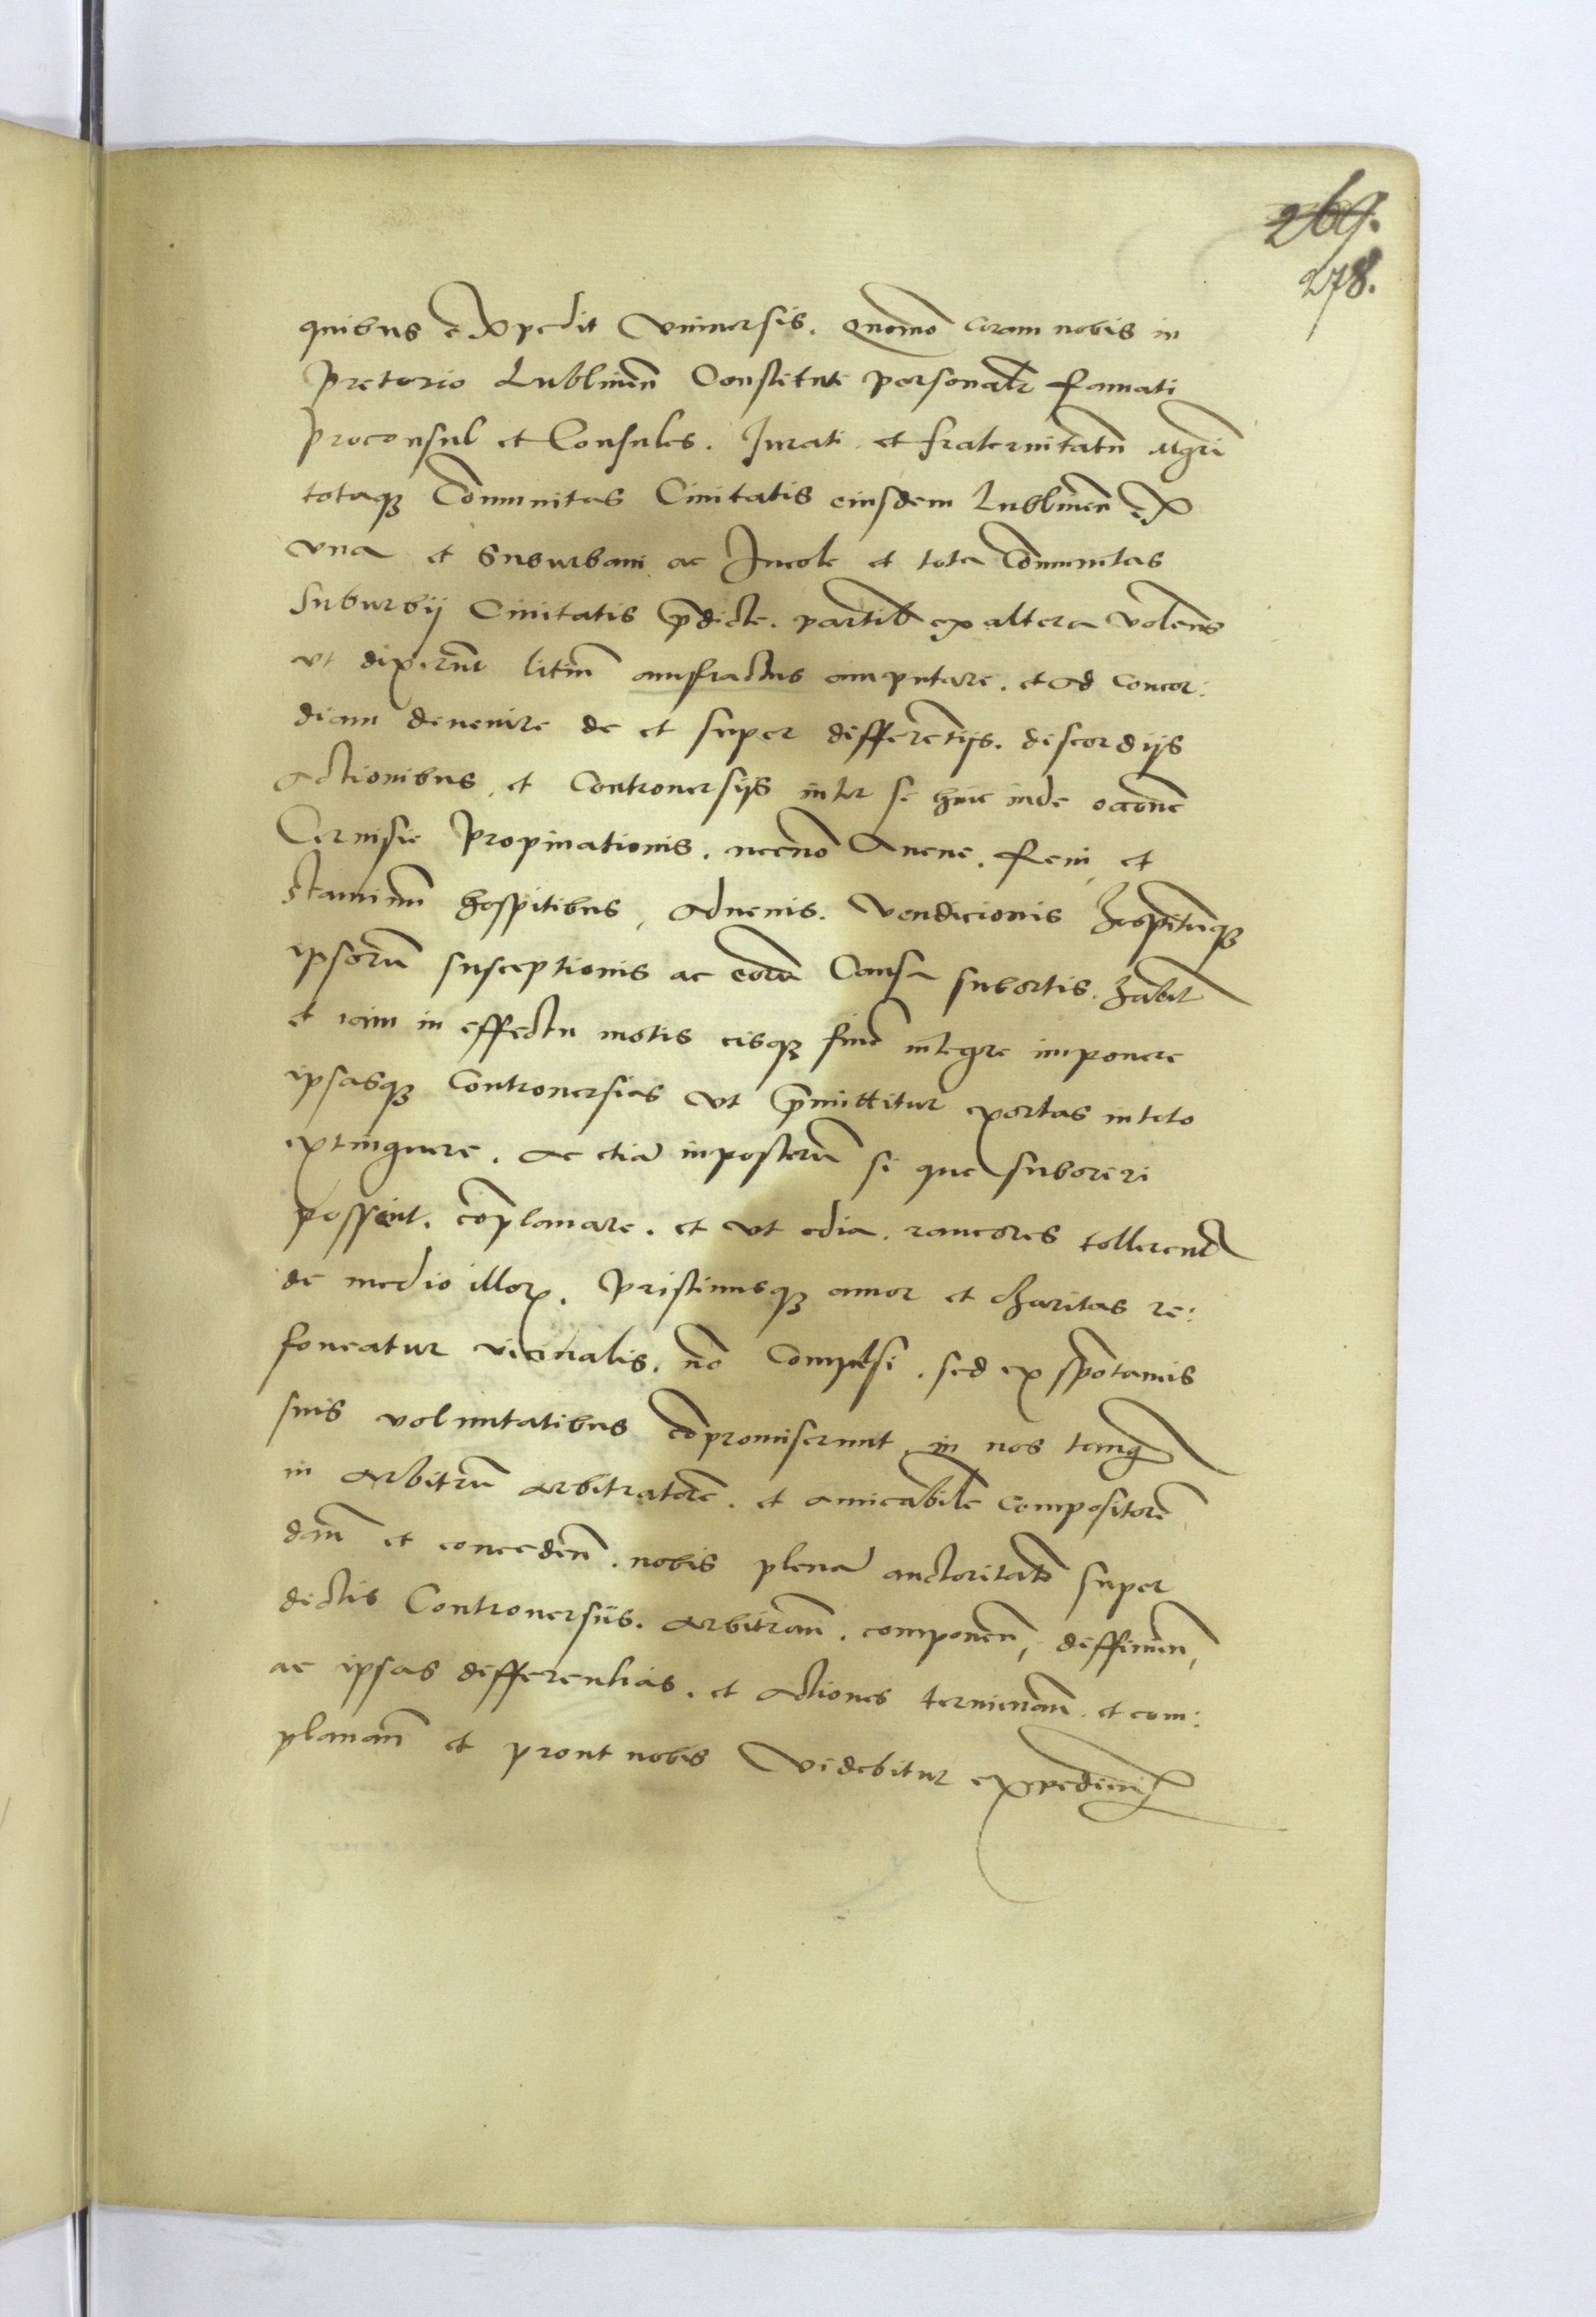 269.
278.
quibus expedit vniuersis. Quomo coram nobis in
pretorio Lublinen̄ Constituti personalr̄ famati
proconsul et Consules. Jurati et fraternitatū Mgr̄i
totaqȝ Com̄unitas Ciuitatis eiusdem Lublinen̄ ex
vna et Suburbani ac Jncole et tota Com̄unitas
suburbij Ciuitatis p̄dicte. partib ex altera volen̄s
vt dixerūt litiū amfractus amputare. et ad concor:
diam deuenire de et super differētijs. discordijs
Actionibus, et Controuersijs inter se hinc inde occ̄one
Ceruisie propinationis. necnō Auene. feni, et
straminū hospitibus, Aduenis. vendicionis hospitūqȝ
ipsorū susceptionis ac eorū Causa subortis. habit
et iam in effectu motis eisqȝ finē integre imponere
ipsasqȝ Controuersias vt p̄mittitur exortas in toto
extinguere. Ac etiā inposterū si que suboriri
possent. cōplanare. et vt odia. rancores tollerent
de medio illoꝝ. pristinusqȝ amor et charitas re:
foueatur vicinalis. nō Compulsi. sed ex spōtaneis
suis voluntatibus cōpromiserunt in nos tanqȝ
in Arbitrū arbitratorē. et amicabilē compositorē
dan̄ et conceden̄. nobis plenā auctoritatē super
dictis Controuersiis. Arbitran̄. componen̄, diffinien̄,
ac ipsas differentias. et Actiones terminan̄. et com:
planan̄ et prout nobis videbitur expedire